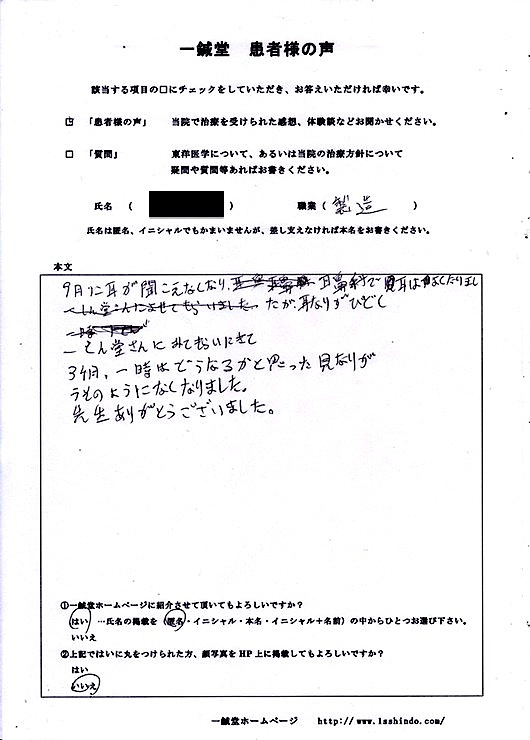 一鍼堂 患者様の声
該当する項目の□にチェックをしていただき、お答えいただければ幸いです。
☑ 「患者様の声」 当院で治療を受けられた感想、体験談などお聞かせください。
□ 「質問」 東洋医学について、あるいは当院の治療方針について
疑問や質問等あればお書きください。
氏名 ( ) 職業 ( 製造 )
氏名は匿名、イニシャルでもかまいませんが、差し支えなければ本名をお書きください。
本文
9月に耳が聞こえなくなり、耳鼻科で耳はよくなりまし
たが、耳なりがひどく
一しん堂さんに来てもらいにきて
3ヶ月、一時はどうなるかと思った耳なりが
うそのようになくなりました。
先生ありがとうございました。
①一鍼堂ホームページに紹介させて頂いてもよろしいですか?
はい …氏名の掲載を (匿名・イニシャル・本名・イニシャル+名前) の中からひとつお選び下さい。
いいえ
②上記ではいに丸をつけられた方、顔写真をHP上に掲載してもよろしいですか?
はい
いいえ
一鍼堂ホームページ http://www.1sshindo.com/